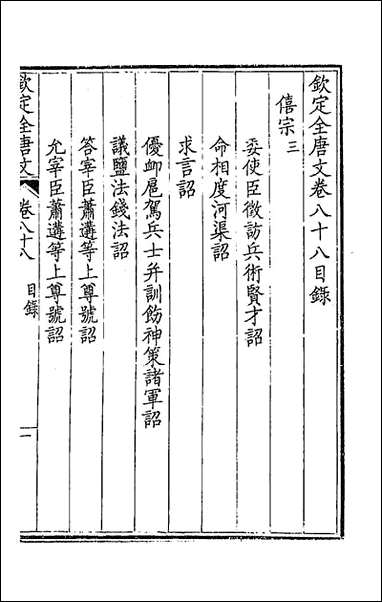 欽定全唐文卷八十八目錄
僖宗三
委使臣徵訪兵術賢才詔
命相度河渠詔
求言詔
優卹扈駕兵士幷訓飭神策諸軍詔
議鹽法錢法詔
答宰臣蕭遘等上尊號詔
允宰臣蕭遘等上尊號詔
欽定全唐文 卷八十八 目錄 一